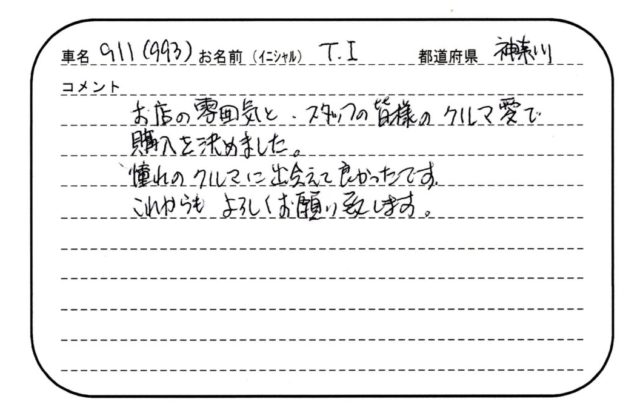 車名 911(993) お名前(イニシャル) T.I 都道府県 神奈川
コメント
お店の雰囲気と、スタッフの皆様のクルマ愛で
購入を決めました。
憧れのクルマに出会えて良かったです。
これからもよろしくお願い致します。